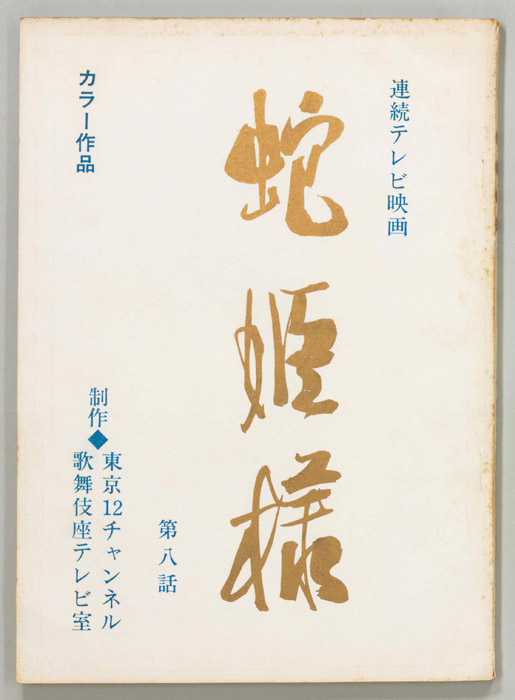 連続テレビ映画
蛇姫様
第八話
カラー作品
制作◆東京12チャンネル
歌舞伎座テレビ室